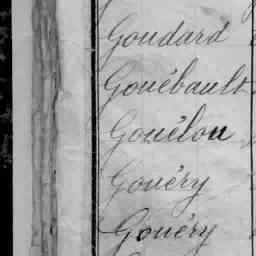 Goudard
Gouébault
Gouélou
Gouéry
Gouéry